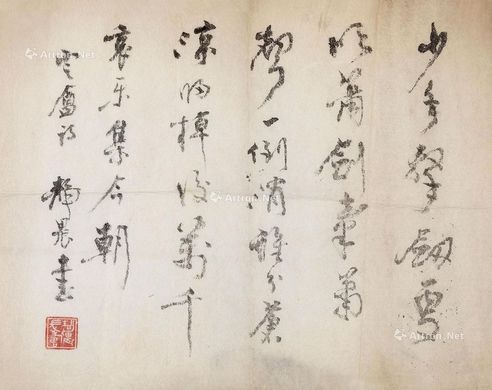 少年擊劍更
吹簫劍氣簫
一例消誰分蒼
涼歸棹後萬千
哀樂集今朝
定盦詩 書
Artron.Net
Artron.Net
Artron.Net
Artron.Net